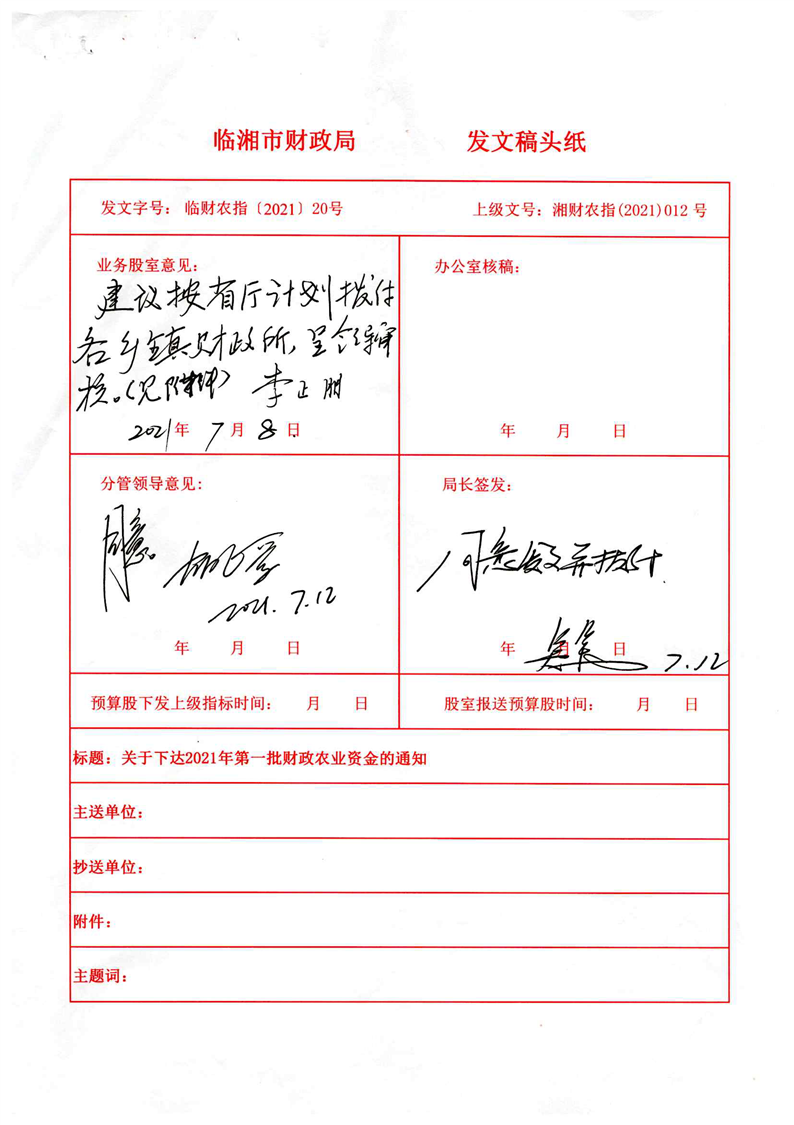 临湘市财政局 发文稿头纸
发文字号： 临财农指〔2021〕20号 上级文号：湘财农指(2021)012 号
业务股室意见：
建议按省厅计划拨付
各乡镇财政所，呈领导审
核。（见附件） 李正朋
2021年 7月 8日
办公室核稿：
年 月 日
分管领导意见：
同意。
2021.7.12
年 月 日
局长签发：
同意发文并拨付.
年 月 日 7.12
预算股下发上级指标时间： 月 日 股室报送预算股时间： 月 日
标题：关于下达2021年第一批财政农业资金的通知
主送单位：
抄送单位：
附件：
主题词：